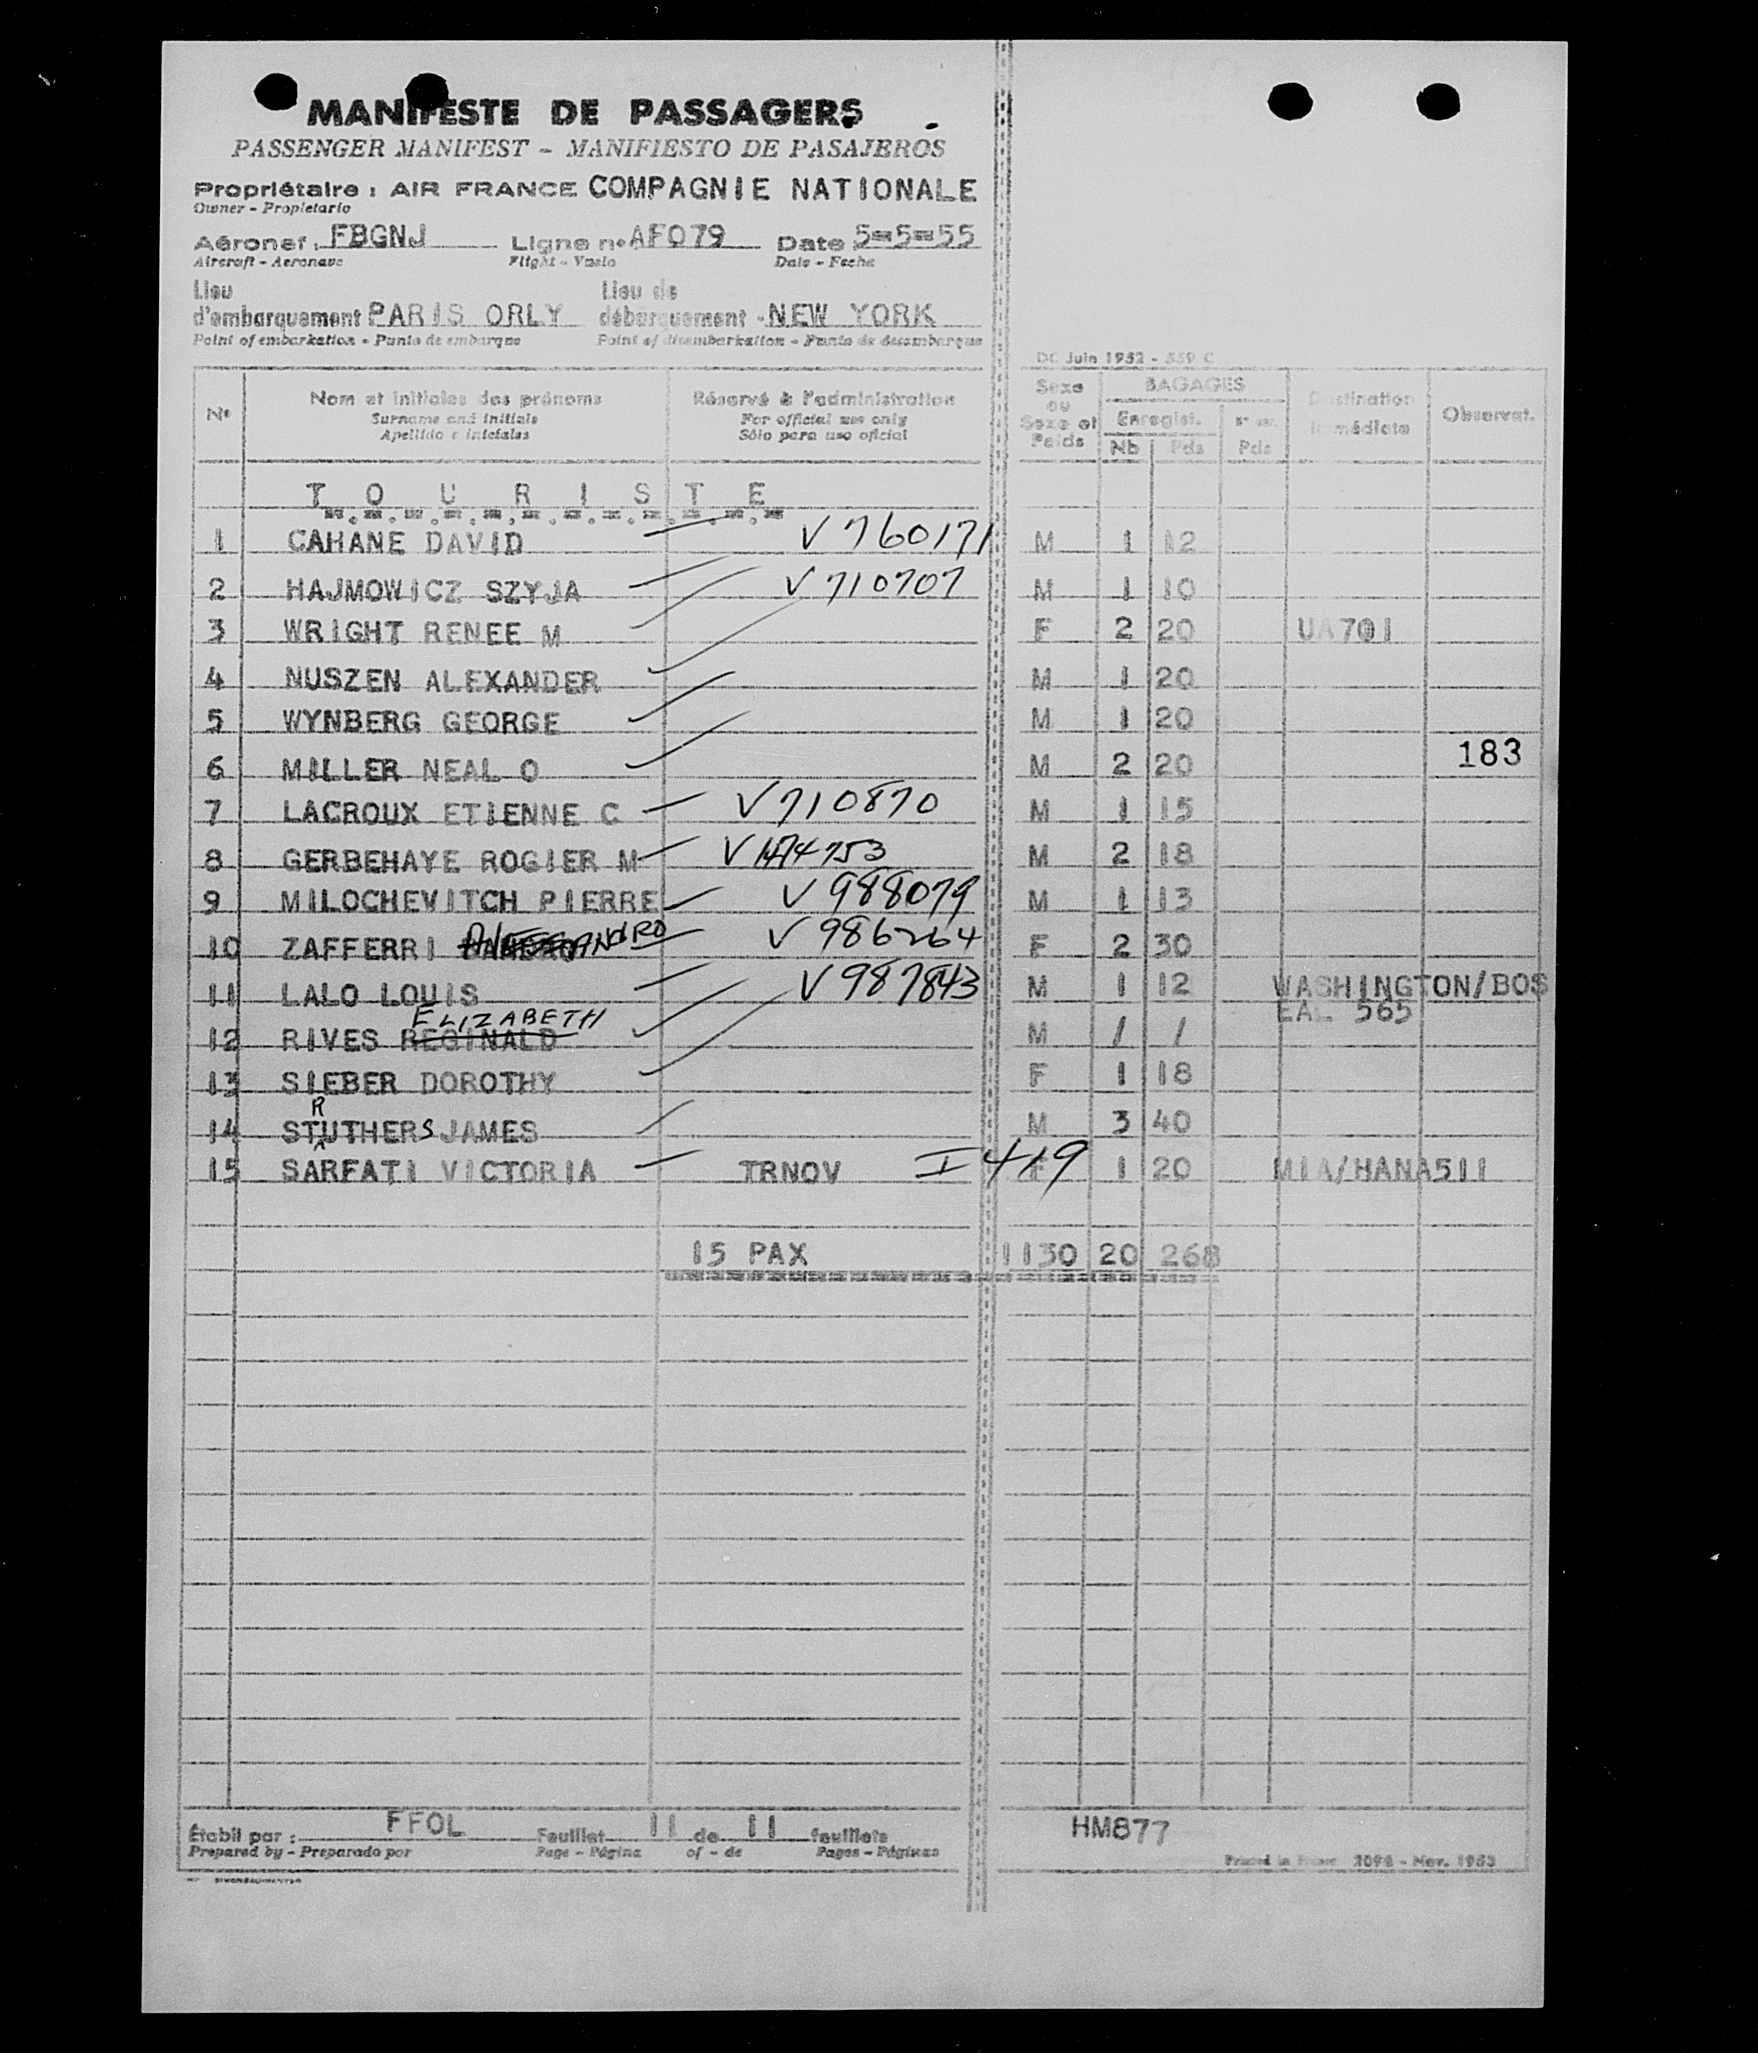 MANIFESTE DE PASSAGERS
PASSENGER MANIFEST - MANIFIESTO DE PASAJEROS
Propriétaire : AIR FRANCE COMPAGNIE NATIONALE
Owner - Propietario
Aéronef : FBGNJ Ligne n° AF079 Date 5=5=55
Aircraft - Aeronave Flight - Vuelo Date - Fecha
Lieu d'embarquement PARIS ORLY Lieu de débarquement - NEW YORK
Point of embarkation - Punto de embarque Point of disembarkation - Punto de desembarque
DC Juin 1952 - 559 C
N° Nom et initiales des prénoms Réservé à l'administration Sexe ou Sexe et Poids BAGAGES Destination immédiate Observat.
Surname and initials For official use only Enregist.
Apellido e iniciales Sólo para uso oficial Nb Pds Pds
T O U R I S T E
1 CAHANE DAVID V 760171 M 1 12
2 HAJMOWICZ SZYJA V 710707 M 1 10
3 WRIGHT RENEE M F 2 20 UA701
4 NUSZEN ALEXANDER M 1 20
5 WYNBERG GEORGE M 1 20
6 MILLER NEAL O M 2 20 183
7 LACROUX ETIENNE C V 710870 M 1 15
8 GERBEHAYE ROGIER M V 1474753 M 2 18
9 MILOCHEVITCH PIERRE V 988079 M 1 13
10 ZAFFERRI V 986264 F 2 30
11 LALO LOUIS V 987843 M 1 12 WASHINGTON/BOS
EAL 565
ELIZABETH
12 RIVES REGINALD M / /
13 SIEBER DOROTHY F 1 18
R
14 STUTHERS JAMES M 3 40
15 SARFATI VICTORIA TRNOV I 419 F 1 20 MIA/HANA511
15 PAX 1130 20 268
Établi par : FFOL Feuillet 11 de 11 feuillets HM877
Prepared by - Preparado por Page - Página of - de Pages - Páginas
Printed in France 2098 - Nov. 1953